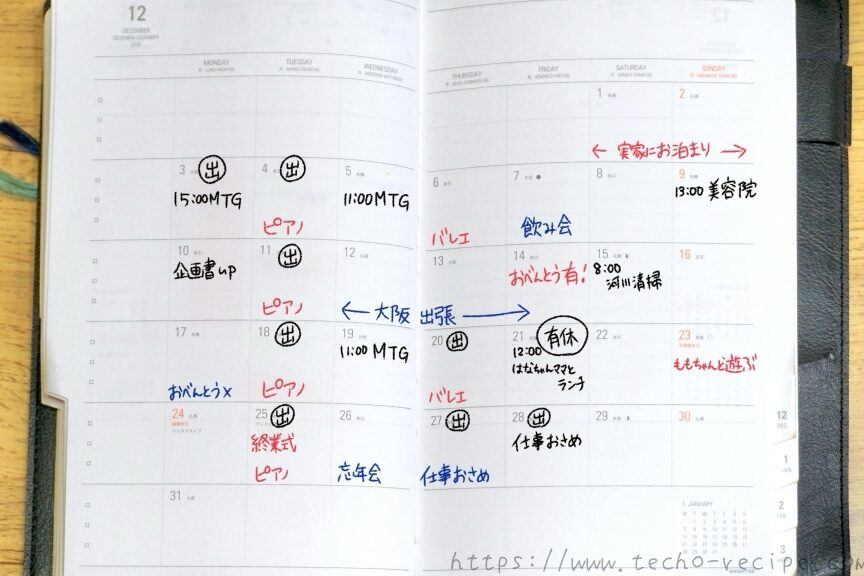 12
DECEMBER
MONDAY
TUESDAY
WEDNESDAY
THURSDAY
FRIDAY
SATURDAY
SUNDAY
1
2
← 実家にお泊まり →
3 出
15:00 MTG
4 出
ピアノ
5
11:00 MTG
6
バレエ
7
飲み会
8
9
13:00 美容院
10
企画書up
11 出
ピアノ
12
← 大阪 出張 →
13
14
おべんとう有!
15
8:00
河川清掃
16
17
おべんとう×
18 出
ピアノ
19
11:00 MTG
20 出
バレエ
21 有休
12:00
はなちゃんママと
ランチ
22
23
ももちゃんと遊ぶ
24
25 出
終業式
ピアノ
26
忘年会
27 出
仕事おさめ
28 出
仕事おさめ
29
30
31
1 JANUARY
12
DEC.
1
JAN.
2
3
https://www.techo-recipe.com